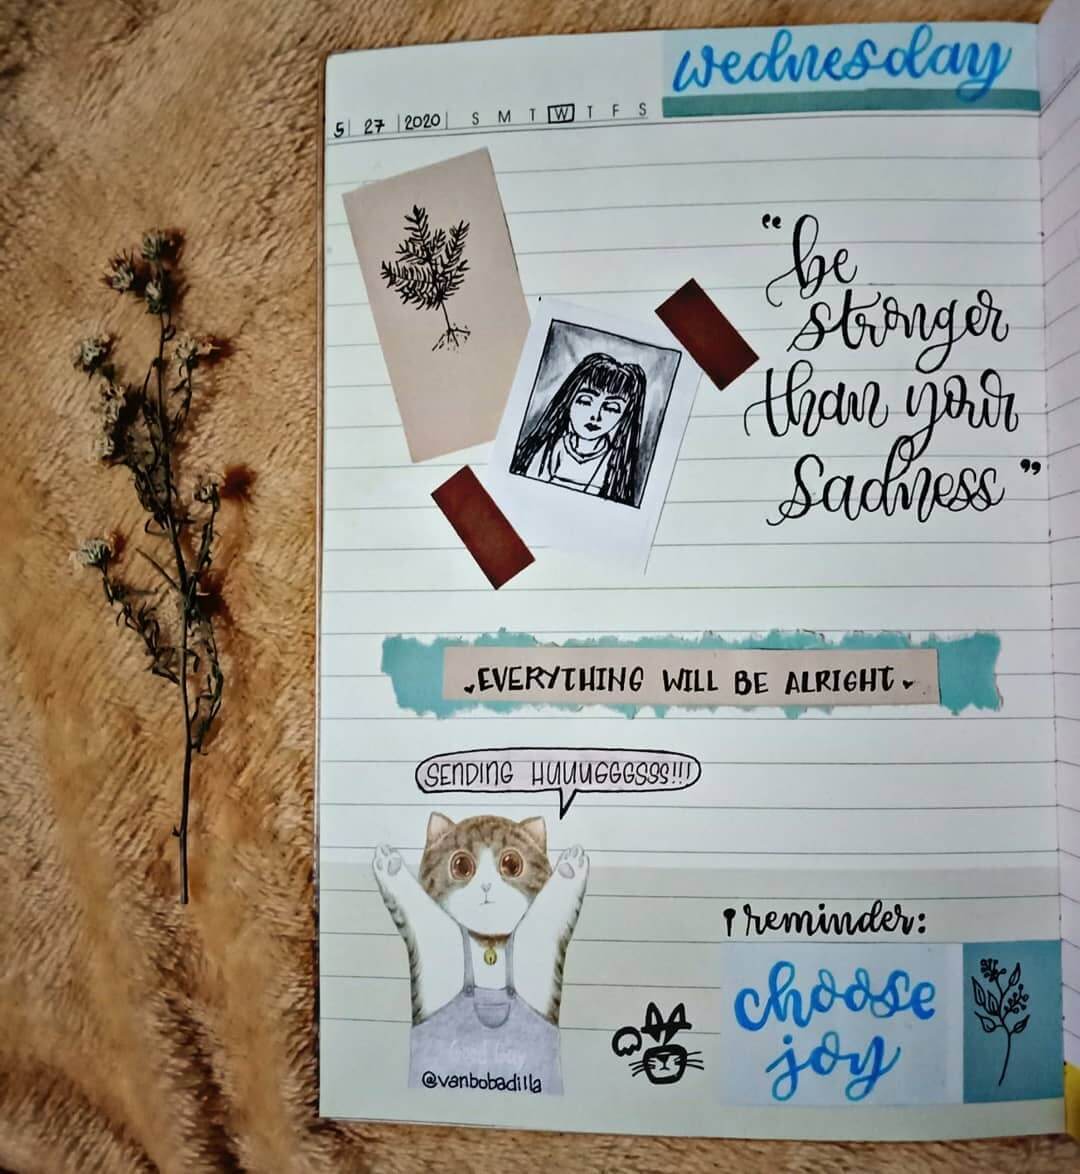 wednesday
5 27 2020 S M T W T F S
"be
stronger
than your
sadness"
EVERYTHING WILL BE ALRIGHT
SENDING HUUUGGGSSS!!!
@vanbobadilla
reminder:
choose
joy